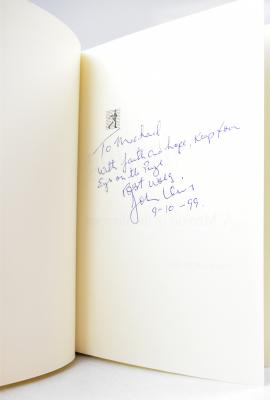 To Michael
With faith and hope, Keep your
Eyes on the Prize.
Best Wishes,
John Lewis
9-10-99.